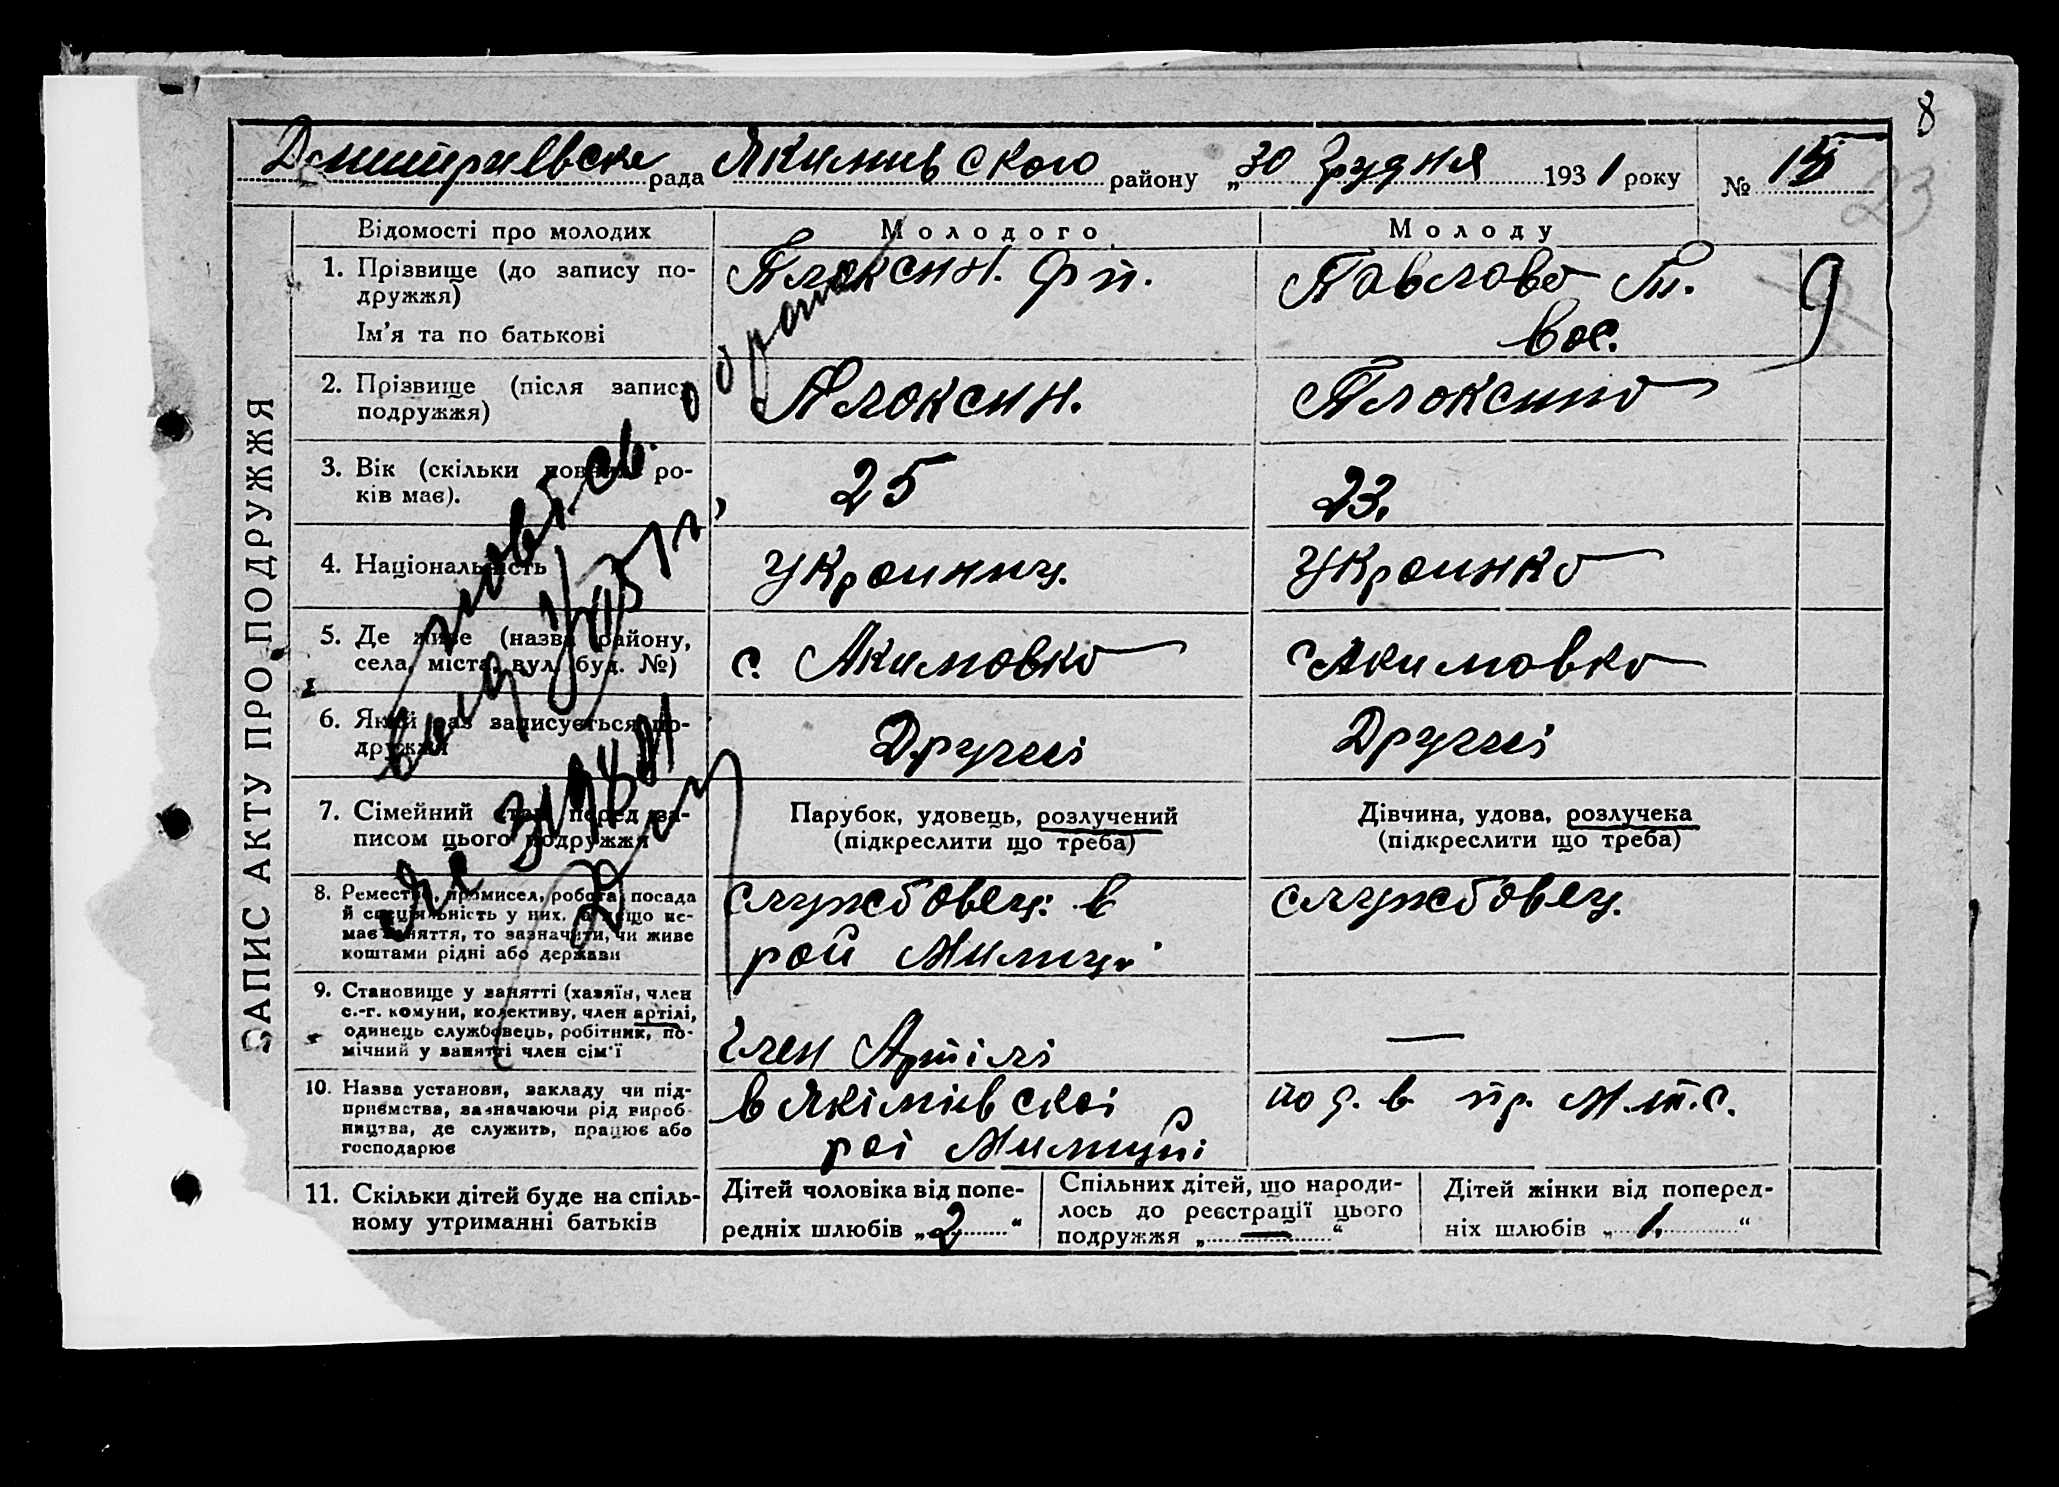 8
Дмитриевска рада Якимивського району „30 Грудня 1931 року № 15
23
ЗАПИС АКТУ ПРО ПОДРУЖЖЯ
Відомості про молодих
Молодого
Молоду
1. Прізвище (до запису по-
дружжя)
Ім'я та по батькові
Плоксин. Ф П.
Павлова М.
Вас.
9
2. Прізвище (після запису
подружжя)
Плоксин.
Плоксина
3. Вік (скільки повних ро-
ків має).
25
23.
4. Національність
Украинец.
Украинка
5. Де живе (назва району,
села, міста, вул. буд. №)
с. Акимовка
с Акимовка
6. Який раз записується по-
дружжя
Другий
Другий
7. Сімейний стан перед за-
писом цього подружжя
Парубок, удовець, розлучений
(підкреслити що треба)
Дівчина, удова, розлучека
(підкреслити що треба)
8. Ремество, промисел, робота, посада
й спеціяльність у них, а якщо не-
має заняття, то зазначити, чи живе
коштами рідні або держави
службовец: в
рай Милиц.
службовец.
9. Становище у занятті (хазяїн, член
с.-г. комуни, колективу, член артілі,
одинець службовець, робітник, по-
мічний у занятті член сім'ї
Член Артілі
—
10. Назва установи, закладу чи під-
приємства, зазначаючи рід вироб-
ництва, де служить, працює або
господарює
в Якімівскій
рай Милиції
М.т.с.
11. Скільки дітей буде на спіль-
ному утриманні батьків
Дітей чоловіка від попе-
редніх шлюбів „2“
Спільних дітей, що народи-
лось до реєстрації цього
подружжя „—“
Дітей жінки від поперед-
ніх шлюбів „1.“